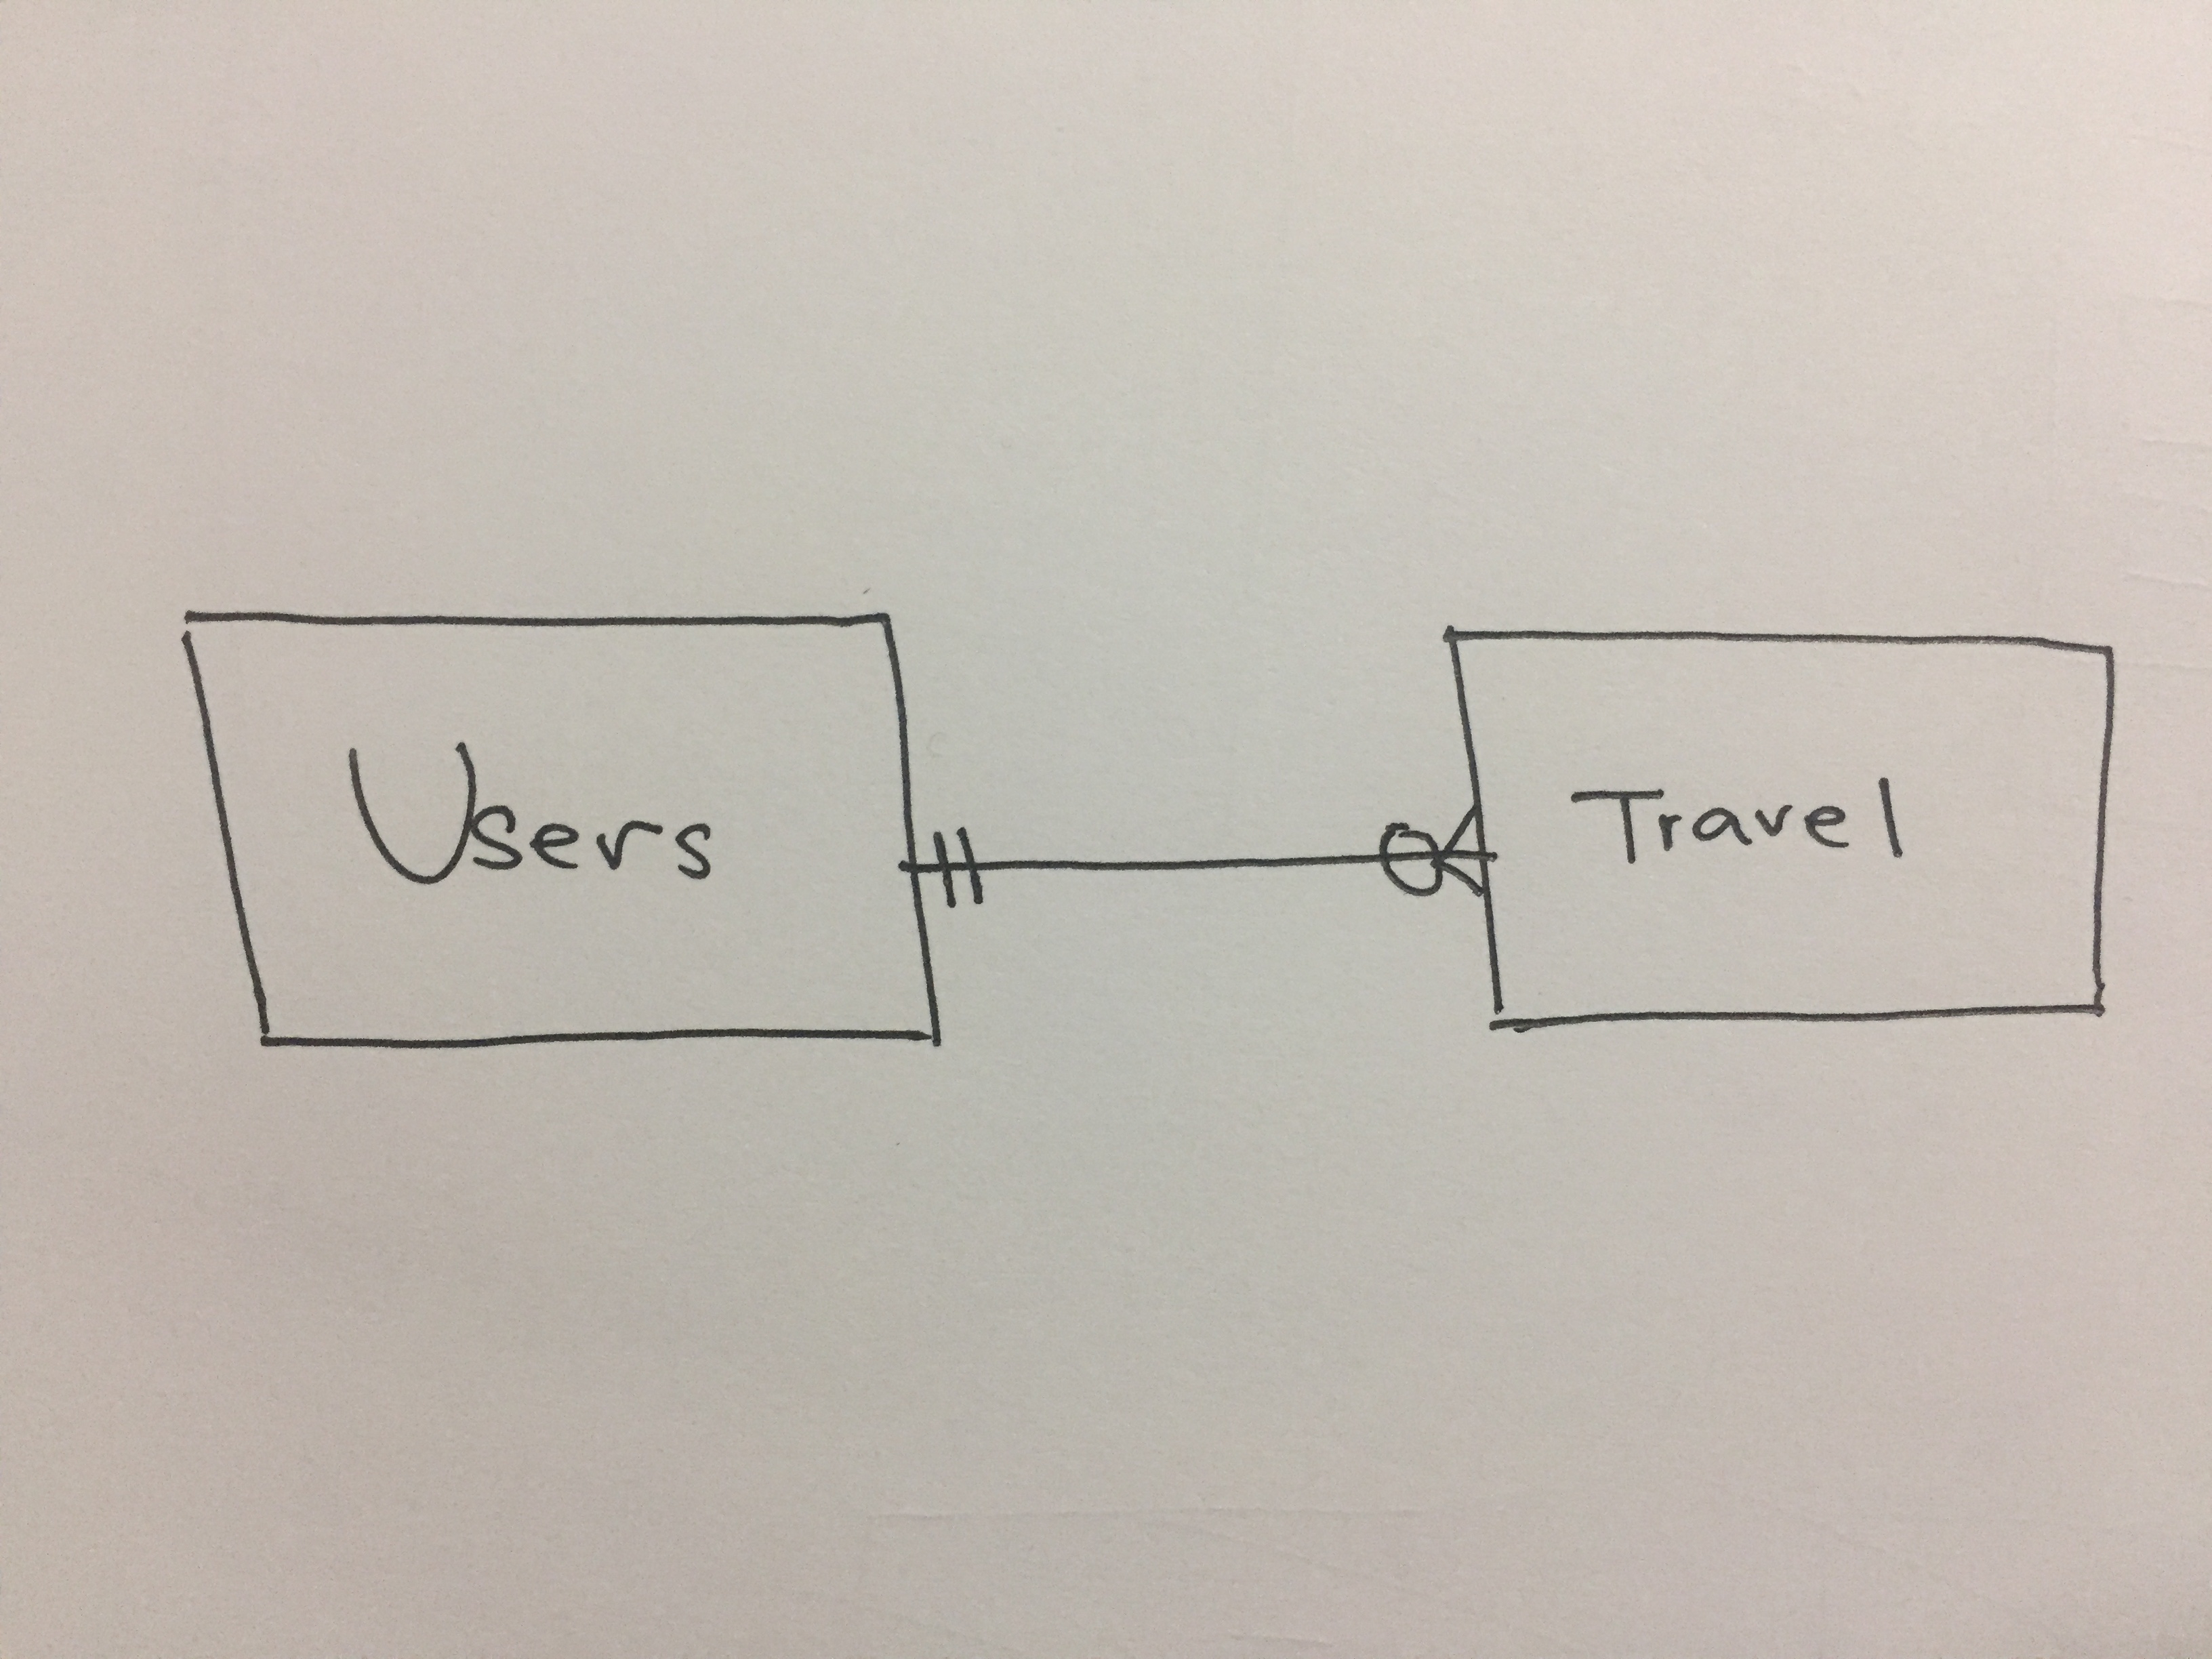 Users
Travel